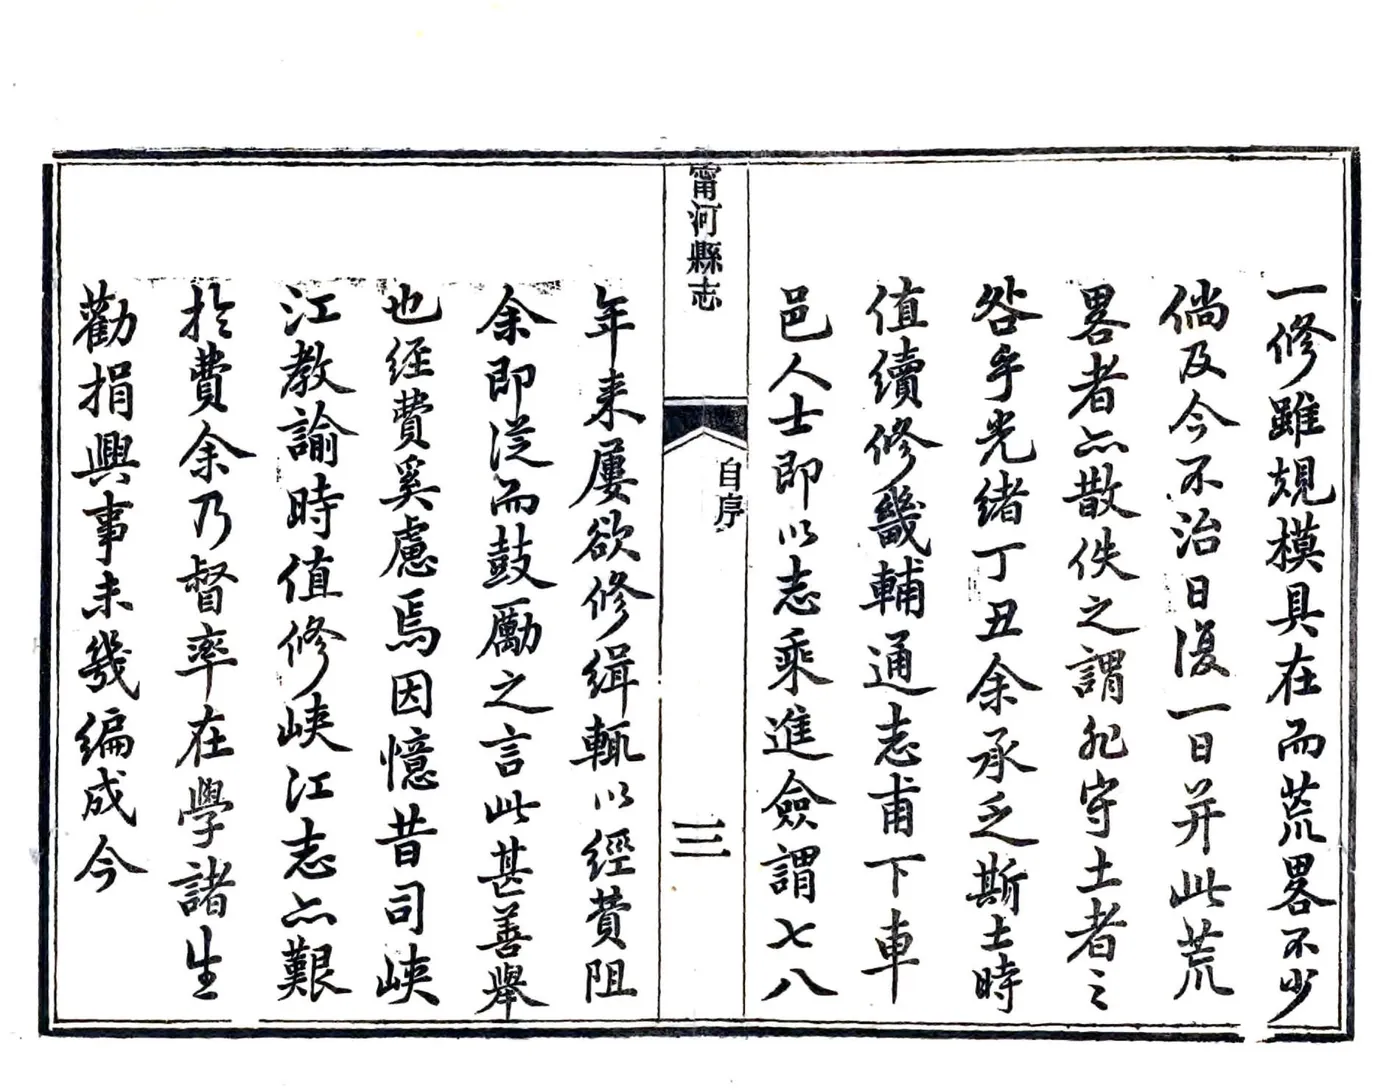 一修雖規模具在而荒畧不少
倘及今不治日復一日并此荒
畧者亦散佚之謂非守土者之
咎乎光緒丁丑余承乏斯土時
值續修畿輔通志甫下車
邑人士即以志乘進僉謂七八
甯河縣志
自序
三
年来屢欲修緝輒以經費阻
余即從而鼓勵之言此甚善舉
也經費奚慮焉因憶昔司峽
江教諭時值修峽江志亦艱
於費余乃督率在學諸生
勸捐興事未幾編成今